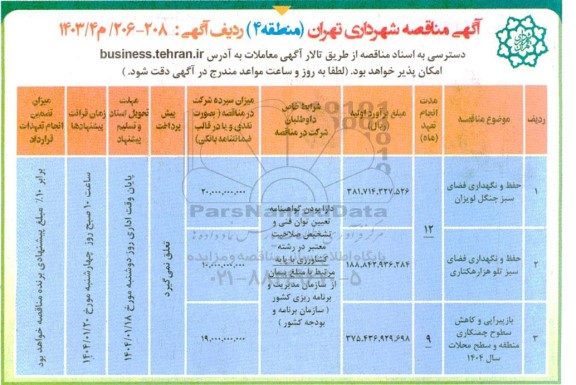 آگهی مناقصه شهرداری تهران (منطقه۴) ردیف آگهی: ۲۰۸-۲۰۶/م۱۴۰۳/۴
دسترسی به اسناد مناقصه از طریق تالار آگهی معاملات به آدرس business.tehran.ir
امکان پذیر خواهد بود. (لطفا به روز و ساعت مواعد مندرج در آگهی دقت شود.)
ردیف
موضوع مناقصه
مدت انجام تعهد (ماه)
مبلغ برآورد اولیه (ریال)
شرایط خاص داوطلبان شرکت در مناقصه
میزان سپرده شرکت در مناقصه (بصورت نقدی و یا در قالب ضمانتنامه بانکی)
پیش پرداخت
مهلت تحویل اسناد و تسلیم پیشنهاد
زمان قرائت پیشنهادها
میزان تضمین انجام تعهدات قرارداد
۱
حفظ و نگهداری فضای سبز جنگل لویزان
۱۲
۳۸۱,۷۱۴,۳۲۷,۵۲۶
دارا بودن گواهینامه تعیین توان فنی و تشخیص صلاحیت معتبر در رشته کشاورزی با پایه مرتبط با مبلغ پیمان از سازمان مدیریت و برنامه ریزی کشور (سازمان برنامه و بودجه کشور)
۲۰,۰۰۰,۰۰۰,۰۰۰
تعلق نمی گیرد
پایان وقت اداری روز دوشنبه مورخ ۱۴۰۴/۰۱/۱۸
ساعت ۱۰ صبح روز چهارشنبه مورخ ۱۴۰۴/۰۱/۲۰
برابر ۱۰٪ مبلغ پیشنهادی برنده مناقصه خواهد بود
۲
حفظ و نگهداری فضای سبز تلو هزارهکتاری
۱۸۸,۸۴۳,۹۳۶,۳۸۴
۱۰,۰۰۰,۰۰۰,۰۰۰
۳
بازپیرایی و کاهش سطوح چمنکاری منطقه و سطح محلات سال ۱۴۰۴
۹
۳۷۵,۴۳۶,۹۲۹,۶۹۸
۱۹,۰۰۰,۰۰۰,۰۰۰
ParsNamadData